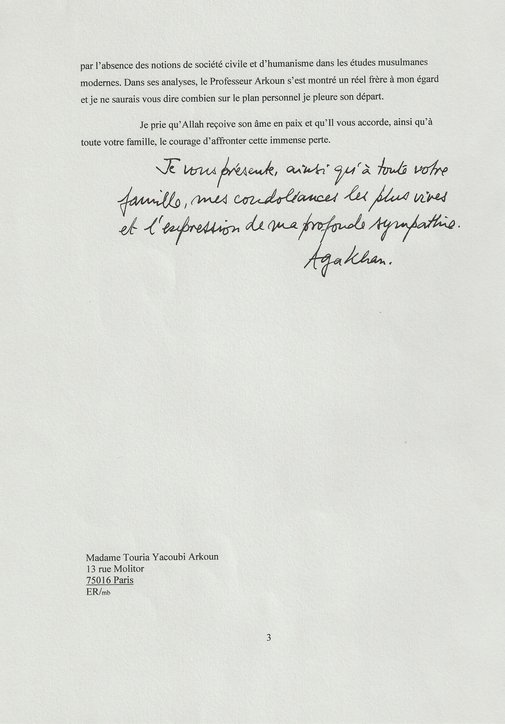 par l'absence des notions de société civile et d'humanisme dans les études musulmanes
modernes. Dans ses analyses, le Professeur Arkoun s'est montré un réel frère à mon égard
et je ne saurais vous dire combien sur le plan personnel je pleure son départ.
Je prie qu'Allah reçoive son âme en paix et qu'Il vous accorde, ainsi qu'à
toute votre famille, le courage d'affronter cette immense perte.
Je vous présente, ainsi qu'à toute votre
famille, mes condoléances les plus vives
et l'expression de ma profonde sympathie.
Aga Khan.
Madame Touria Yacoubi Arkoun
13 rue Molitor
75016 Paris
ER/mb
3